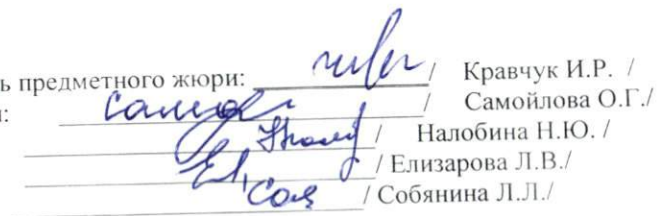 ь предметного жюри: / Кравчук И.Р. /
и: / Самойлова О.Г./
/ Налобина Н.Ю. /
/ Елизарова Л.В./
/ Собянина Л.Л./